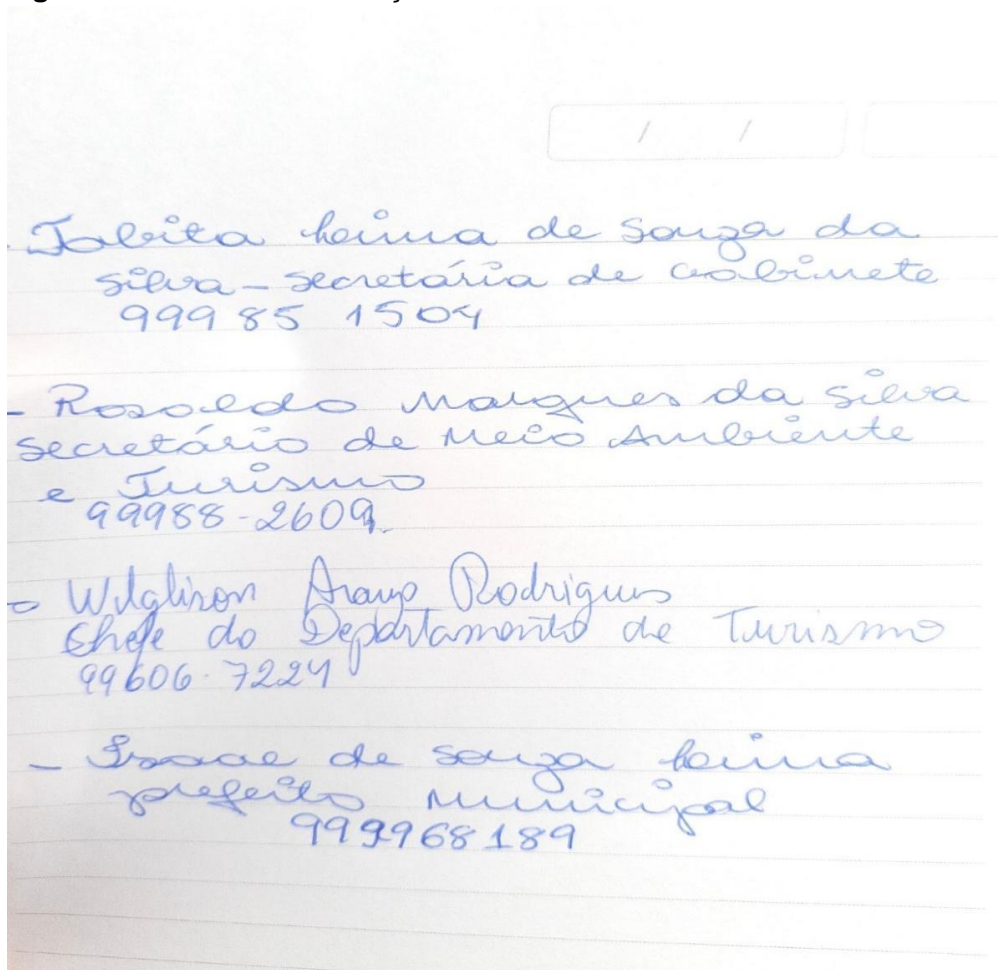 - Tabita Leima de Souza da
Silva - Secretária de Gabinete
999 85 1504
- Rosoldo Marques da Silva
Secretário de Meio Ambiente
e Turismo
99988-2609
- Wilglison Araujo Rodrigues
Chefe do Departamento de Turismo
99606-7224
- de Souza Leima
prefeito Municipal
999968189